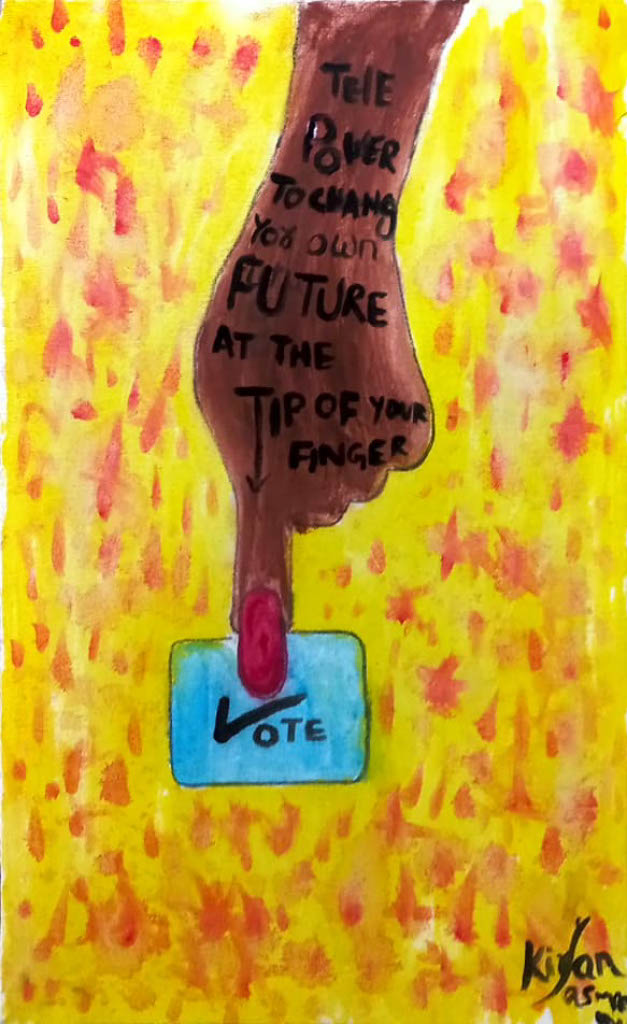 THE
POWER
TO CHANG
YOR OWN
FUTURE
AT THE
TIP OF YOUR
FINGER
VOTE
Kiran